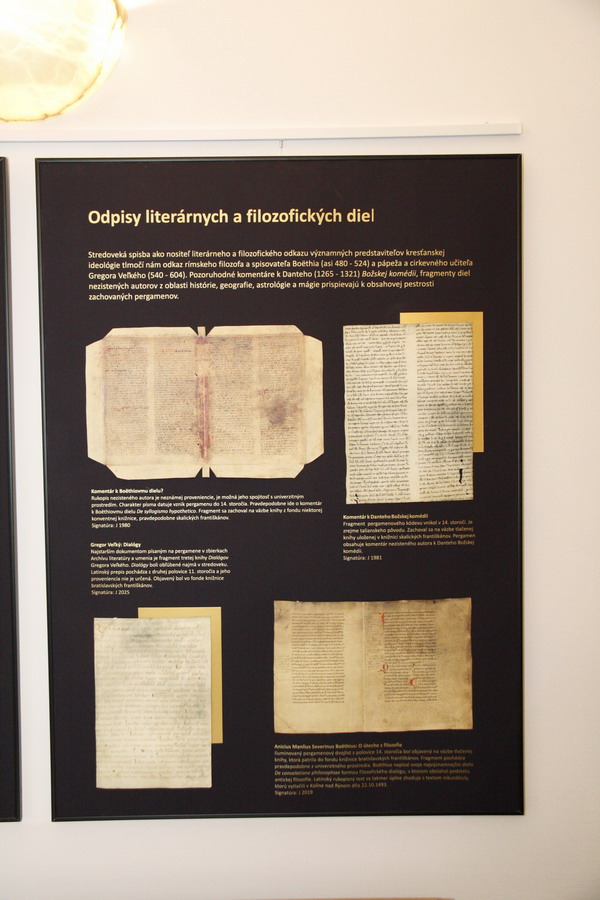 Odpisy literárnych a filozofických diel
Stredoveká spisba ako nositeľ literárneho a filozofického odkazu významných predstaviteľov kresťanskej
ideológie tlmočí nám odkaz rímskeho filozofa a spisovateľa Boëthia (asi 480 - 524) a pápeža a cirkevného učiteľa
Gregora Veľkého (540 - 604). Pozoruhodné komentáre k Danteho (1265 - 1321) Božskej komédii, fragmenty diel
nezistených autorov z oblasti histórie, geografie, astrológie a mágie prispievajú k obsahovej pestrosti
zachovaných pergamenov.
Komentár k Boëthiovmu dielu?
Rukopis nezisteného autora je neznámej proveniencie, je možná jeho spojitosť s univerzitným
prostredím. Charakter písma datuje vznik pergamenu do 14. storočia. Pravdepodobne ide o komentár
k Boëthiovmu dielu De syllogismo hypothetico. Fragment sa zachoval na väzbe knihy z fondu niektorej
konventnej knižnice, pravdepodobne skalických františkánov.
Signatúra: J 1980
Komentár k Danteho Božskej komédii
Fragment pergamenového kódexu vznikol v 14. storočí. Je
zrejme talianskeho pôvodu. Zachoval sa na väzbe tlačenej
knihy uloženej v knižnici skalických františkánov. Pergamen
obsahuje komentár nezisteného autora k Danteho Božskej
komédii.
Signatúra: J 1981
Gregor Veľký: Dialógy
Najstarším dokumentom písaným na pergamene v zbierkach
Archívu literatúry a umenia je fragment tretej knihy Dialógov
Gregora Veľkého. Dialógy boli obľúbené najmä v stredoveku.
Latinský prepis pochádza z druhej polovice 11. storočia a jeho
proveniencia nie je určená. Objavený bol vo fonde knižnice
bratislavských františkánov.
Signatúra: J 2025
Anicius Manlius Severinus Boëthius: O úteche z filozofie
Iluminovaný pergamenový dvojlist z polovice 14. storočia bol objavený na väzbe tlačenej
knihy, ktorá patrila do fondu knižnice bratislavských františkánov. Fragment pochádza
pravdepodobne z univerzitného prostredia. Boëthius napísal svoje najvýznamnejšie dielo
De consolatione philosophiae formou filozofického dialógu, v ktorom obsiahol podstatu
antickej filozofie. Latinský rukopisný text sa takmer úplne zhoduje s textom inkunábuly,
ktorú vytlačili v Kolíne nad Rýnom dňa 31.10.1493.
Signatúra: J 2019